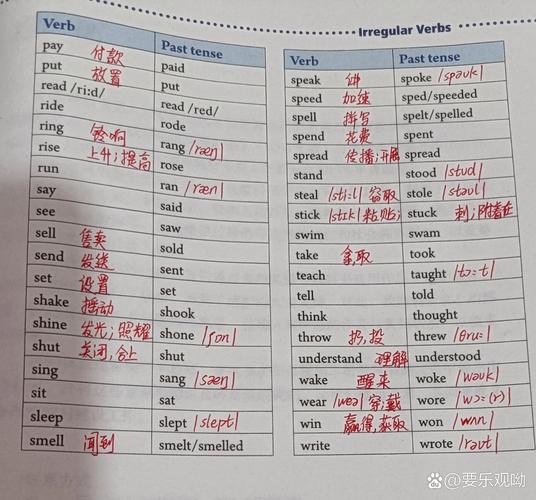 Irregular Verbs
Verb Past tense
pay 付款 paid
put 放置 put
read /ri:d/ read /red/
ride rode
ring 铃响 rang /ræŋ/
rise 上升;提高 rose
run ran /ræn/
say said
see saw
sell 售卖 sold
send 发送 sent
set 设置 set
shake 摇动 shook
shine 发光;照耀 shone /ʃɒn/
shut 关闭,合上 shut
sing sang /sæŋ/
sit sat
sleep slept /slept/
smell 闻到 smelt/smelled
Verb Past tense
speak 讲 spoke /spəʊk/
speed 加速 sped/speeded
spell 拼写 spelt/spelled
spend 花费 spent
spread 传播;开展 spread
stand stood /stud/
steal /sti:l/ 窃取 stole /stəʊl/
stick /stɪk/ 粘贴; stuck 刺;附着在
swim swam
take 拿取 took
teach taught /tɔ:t/
tell told
think thought
throw 扔,投 threw /θru:/
understand 理解 understood
wake 醒来 woke /wəʊk/
wear /weə/ 穿;戴 wore /wɔ:(r)/
win 赢得,获取 won /wʌn/
write wrote /rəʊt/
@要乐观呦